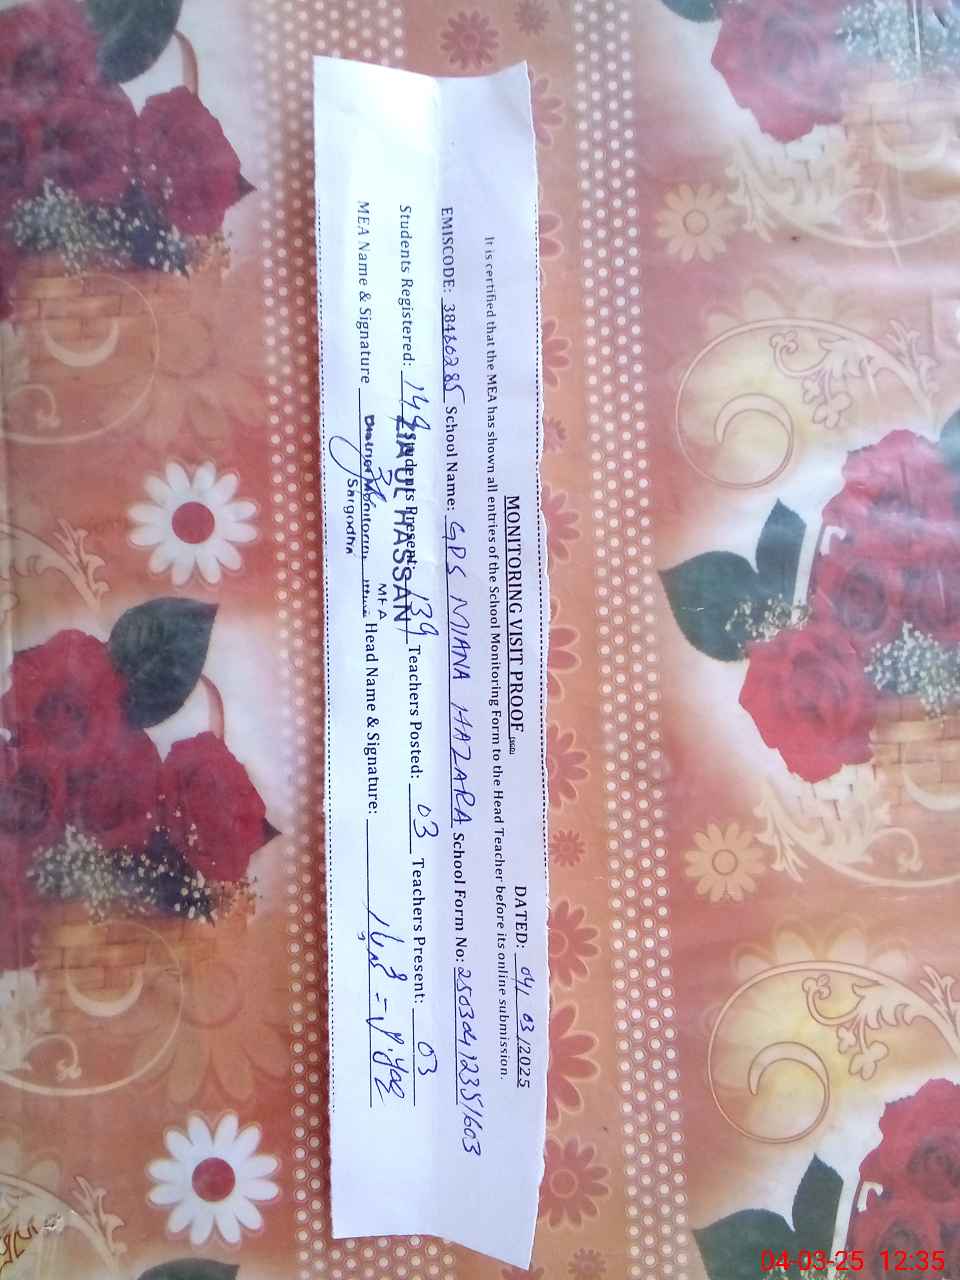 MONITORING VISIT PROOF (SGD) DATED: 04/03/2025
It is certified that the MEA has shown all entries of the School Monitoring Form to the Head Teacher before its online submission.
EMISCODE: 38460285 School Name: GPS MIANA HAZARA School Form No: 25030412351603
Students Registered: 149 Students Present: 139 Teachers Posted: 03 Teachers Present: 03
ZIA UL HASSAN
MEA
MEA Name & Signature Head Name & Signature:
District Monitoring
Sargodha
04-03-25 12:35